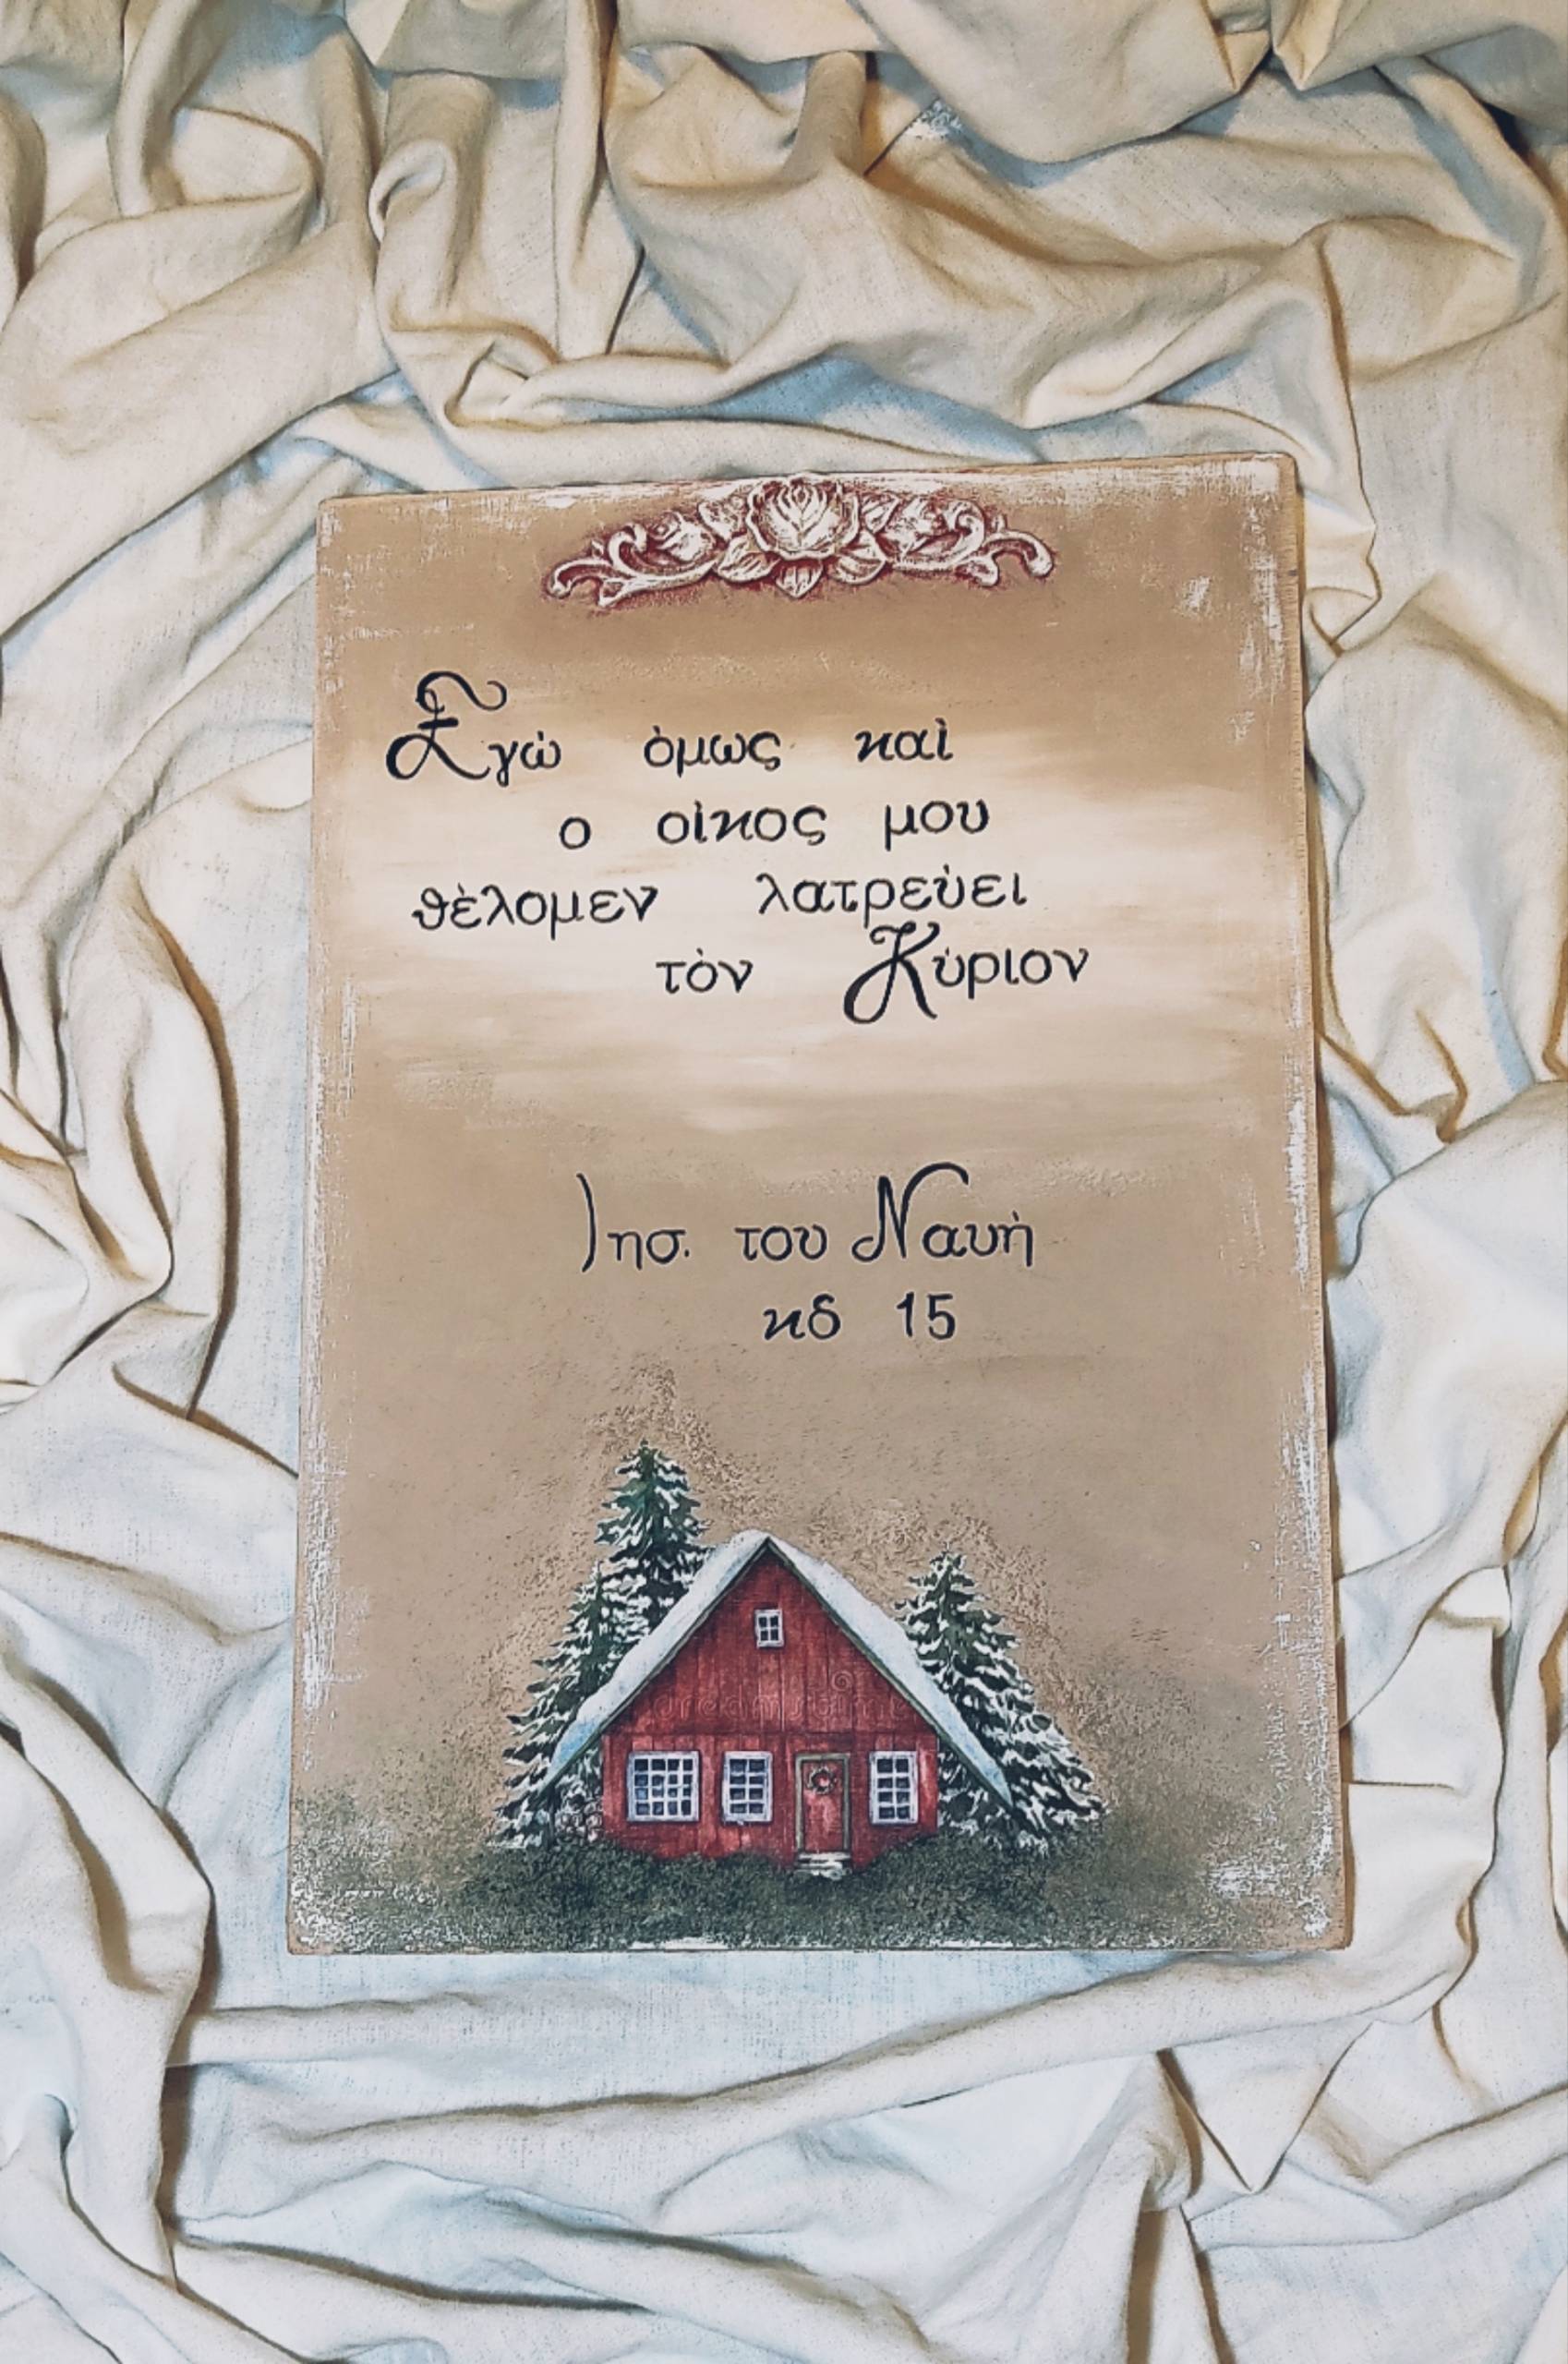 Εγώ όμως καὶ
ο οίκος μου
θέλομεν λατρεύει
τὸν Κύριον
Ιησ. του Ναυή
κδ 15